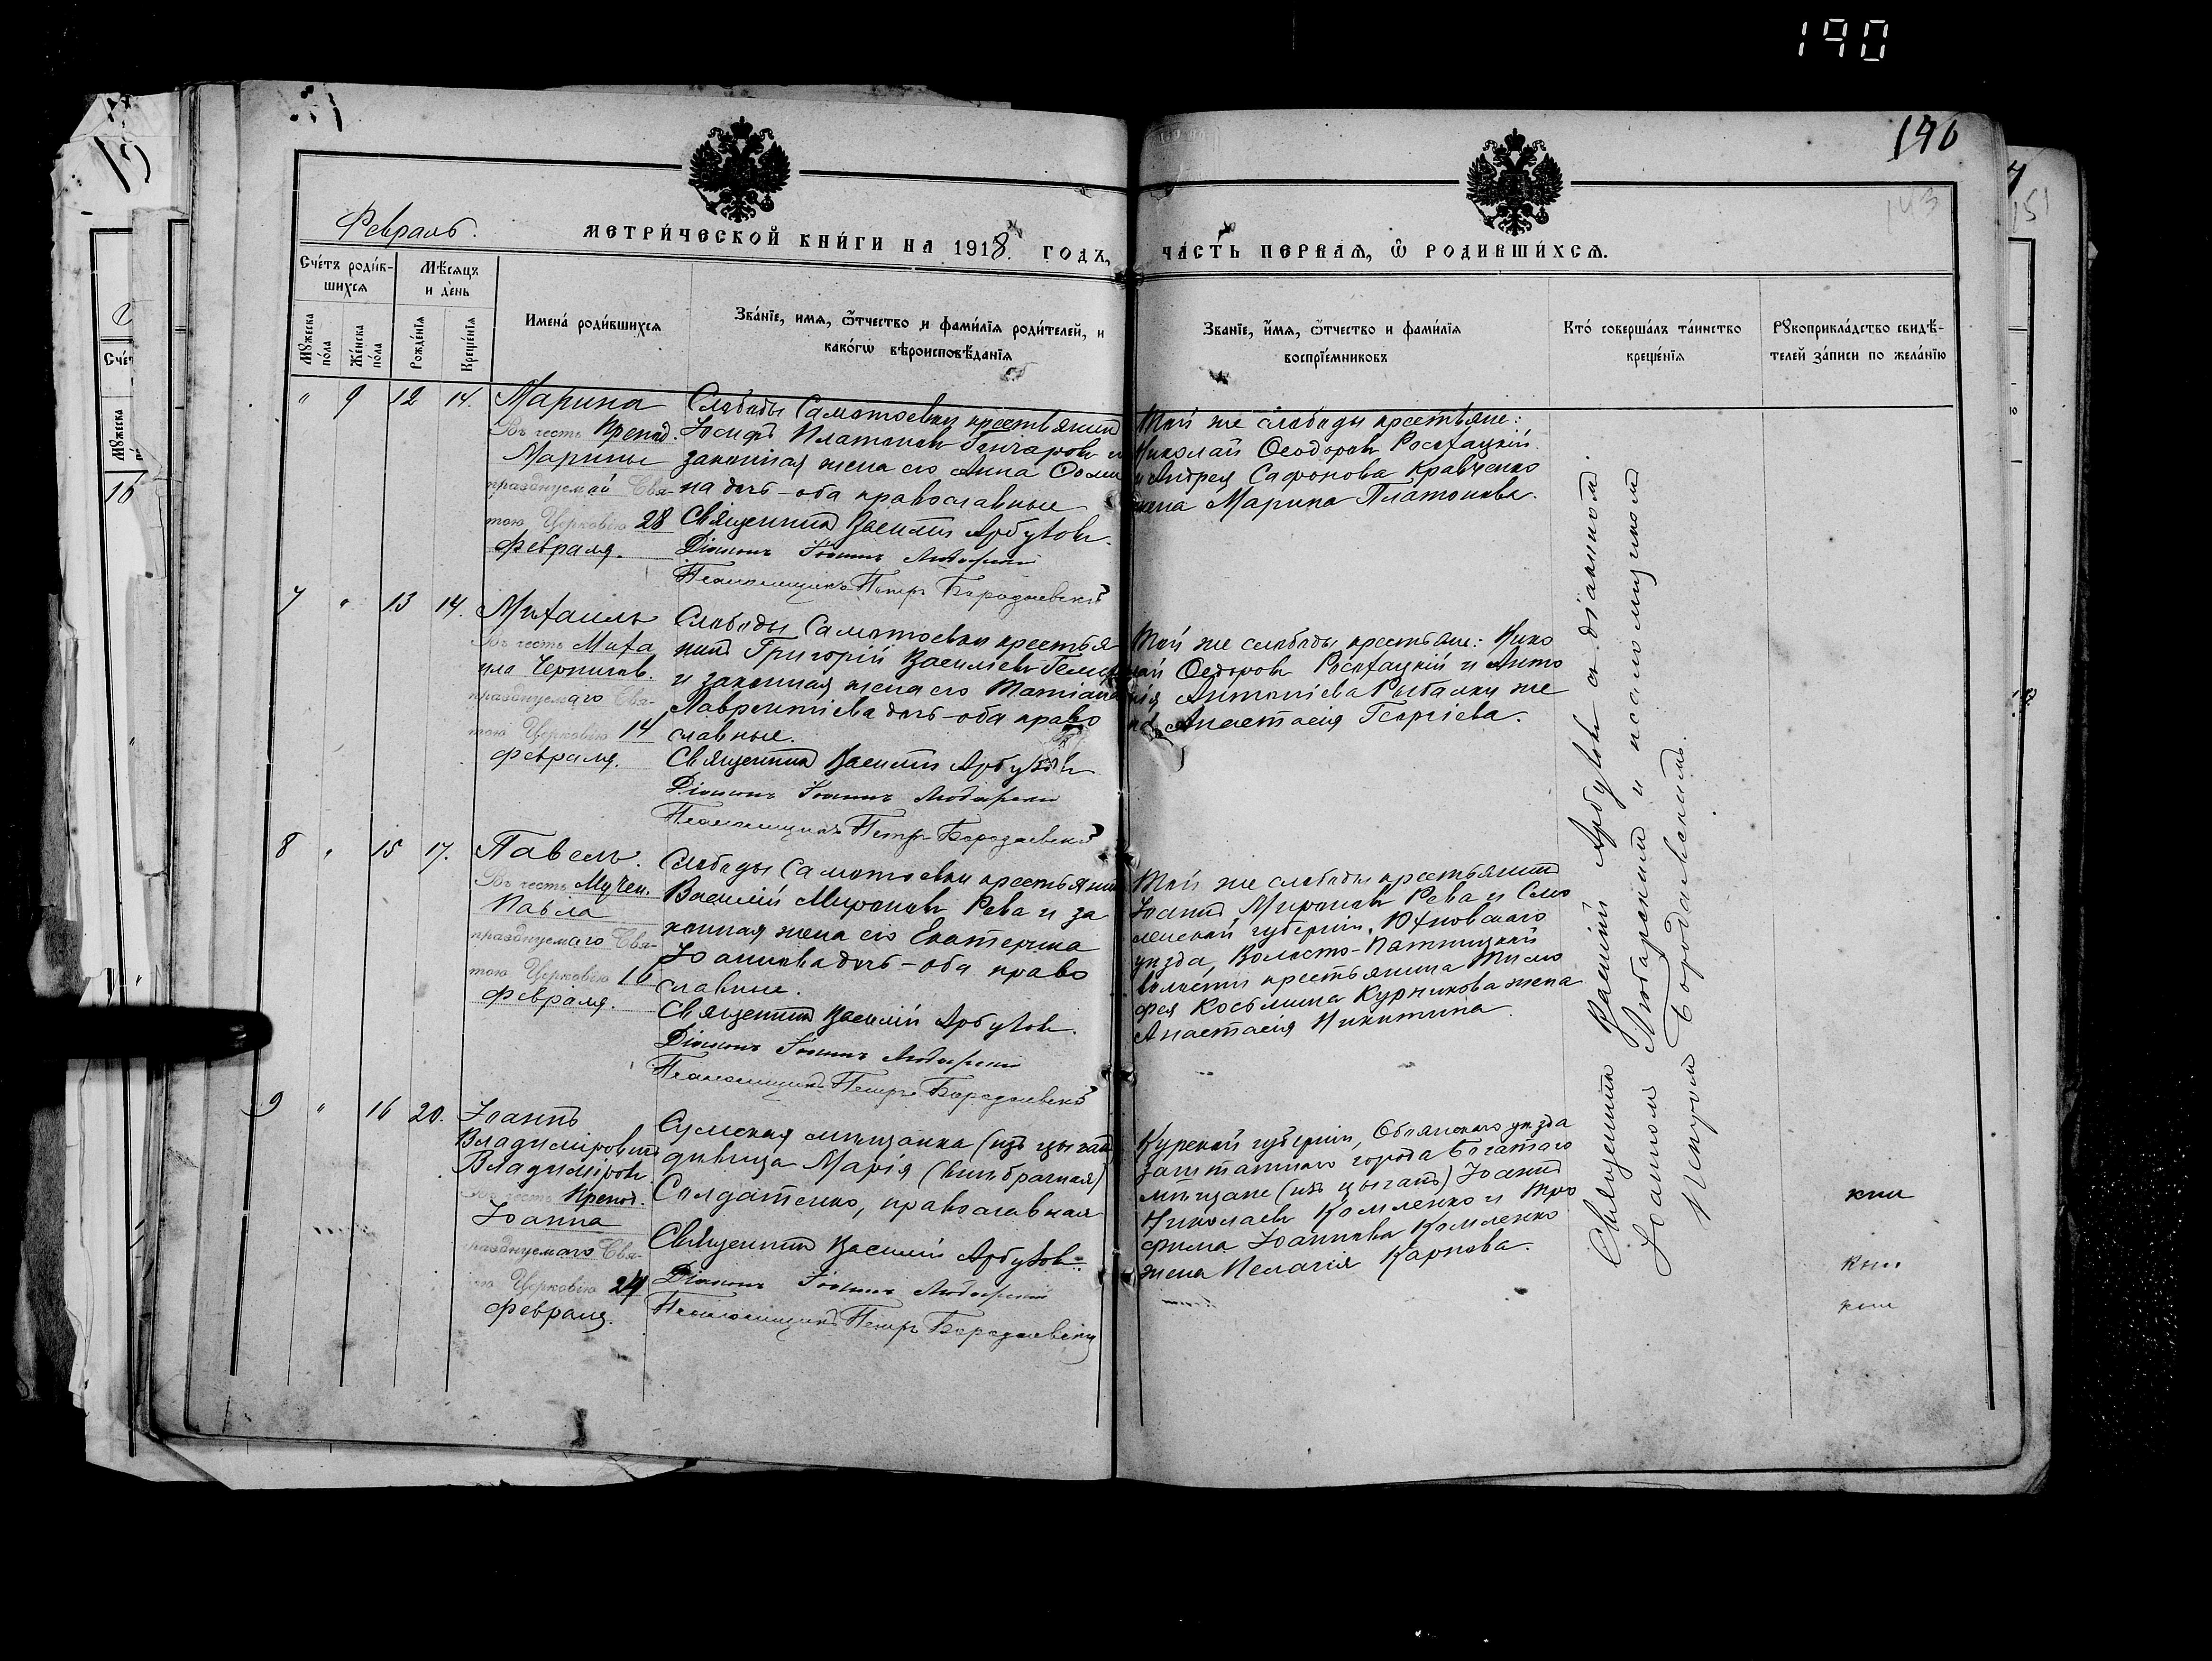 190
190
143
Февраль.
МЕТРИ́ЧЕСКОЙ КНИ́ГИ НА 1918 ГОДЪ,
ЧА́СТЬ ПЕРВАЯ, Ѿ РОДИВШИ́ХСЯ.
Сче́тъ роди́в-
шихся
Мѣ́сяцъ
и де́нь
Мꙋжеска по́ла
Же́нска по́ла
Рожде́нїя
Креще́нїя
Имена́ роди́вшихся
Зва́нїе, имя, ѻ҆́тчество и фами́лїя роди́телей, и
како́гѡ вѣроисповѣ́данїя
Зва́нїе, и҆́мя, ѻ҆́тчество и фами́лїя
воспрїе́мниковъ
Кто́ соверша́лъ та́инство
креще́нїя
Рꙋкоприкла́дство свидѣ́-
телей за́писи по жела́нїю
" 9 12 14.
Марина
Въ честь Препод.
Марины
празднуемой Свя-
тою Церковію 28
февраля.
Слободы Самотоевки крестьянинъ
Іосифъ Платоновъ Гончаровъ и
законная жена его Анна Ѳоми
на дочь - оба православные
Священникъ Василій Арбузовъ.
Діаконъ Іоаннъ Любарскій
Псаломщикъ Петръ Бородаевскій
Той же слободы крестьяне:
Николай Ѳеодоровъ
и Андрея Сафонова Кравченко
жена Марина Платонова.
7 " 13 14.
Михаилъ
Въ честь Миха
ила Чернигов.
празднуемаго Свя-
тою Церковію 14
февраля.
Слободы Самотоевки крестья
нинъ Григорій Васильевъ
и законная жена его Татіана
Лаврентіева дочь - оба право
славные.
Священникъ Василій Арбузовъ
Діаконъ Іоаннъ Любарскій
Псаломщикъ Петръ Бородаевскій
Той же слободы крестьяне: Нико
лай Ѳеодоровъ и Анто
нія Антоніева Рыбалки же
на Анастасія Георгіева.
8 " 15 17.
Павелъ.
Въ честь Мучен.
Павла
празднуемаго Свя-
тою Церковію 16
февраля.
Слободы Самотоевки крестьянинъ
Василій Мироновъ Рева и за
конная жена его Екатерина
Іоаннова дочь - оба право
славные.
Священникъ Василій Арбузовъ.
Діаконъ Іоаннъ Любарскій
Псаломщикъ Петръ Бородаевскій
Той же слободы крестьянинъ
Іоаннъ Мироновъ Рева и Смо
ленской губерніи, Юхновскаго
уѣзда, Волосто-Пятницкой
волости крестьянина Тимо
фея Косьмина Курникова жена
Анастасія Никитина.
9 " 16 20.
Іоаннъ
Владиміровичъ
Владиміровъ.
Въ честь Препод.
Іоанна
празднуемаго Свя-
тою Церковію 24
февраля.
Сумская мѣщанка (изъ цыганъ)
дѣвица Марія (внѣбрачная)
Солдатенко, православная
Священникъ Василій Арбузовъ.
Діаконъ Іоаннъ Любарскій
Псаломщикъ Петръ Бородаевскій
Курской губерніи, Обоянскаго уѣзда
заштатнаго города Богатаго
мѣщане (изъ цыганъ) Іоаннъ
Николаевъ Комленко и Тро
фима Іоаннова Комленко
жена Пелагія Карпова.
Священникъ Василій Арбузовъ съ діакономъ
Іоанномъ Любарскимъ и псаломщикомъ
Петромъ Бородаевскимъ.